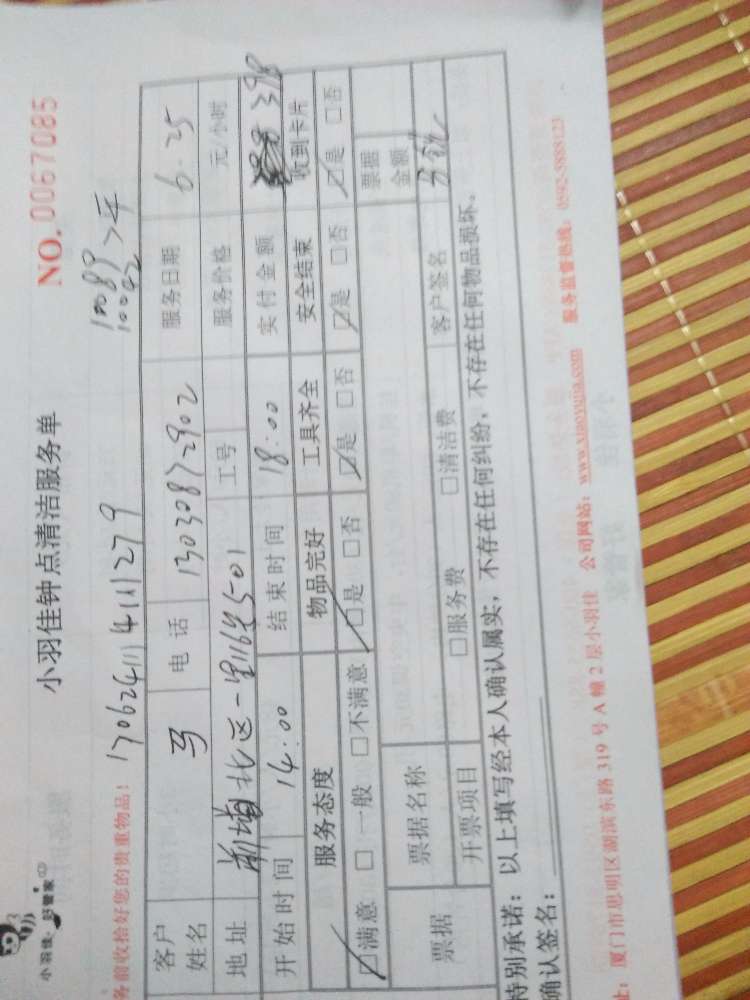 小羽佳·好管家
小羽佳钟点清洁服务单
NO.0067085
务前收拾好您的贵重物品!
客户姓名 马 电话 13030872902 服务日期 6.25
地址 前埔北区一里116号501 工号 服务价格 元/小时
开始时间 14:00 结束时间 18:00 实付金额 398
服务态度 物品完好 工具齐全 安全结束 收到卡片
☑满意 □一般 □不满意 ☑是 □否 ☑是 □否 ☑是 □否 ☑是 □否
票据 票据名称 票据金额
开票项目 □服务费 □清洁费 客户签名
特别承诺:以上填写经本人确认属实,不存在任何纠纷,不存在任何物品损坏。
确认签名:
址:厦门市思明区湖滨东路319号A幢2层小羽佳 公司网站:www.xiaoyujia.com 服务监督热线:0592-5888123